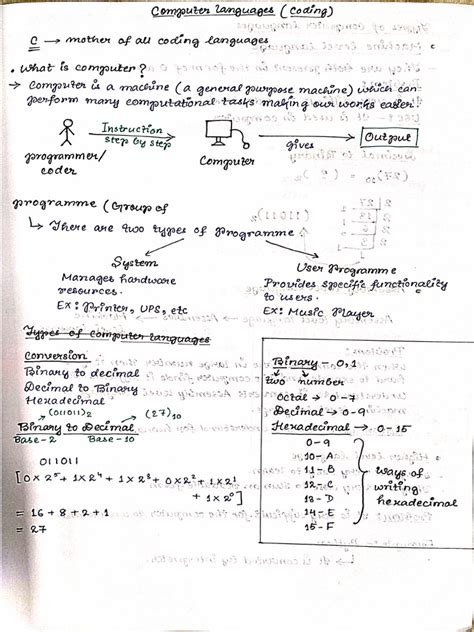 Computer languages (coding)
C → mother of all coding languages
• What is computer?
→ Computer is a machine (a general purpose machine) which can
perform many computational tasks making our works easier.
Instruction
step by step
programmer/
coder
Computer
gives
Output
programme (Group of
↳ There are two types of Programme
System
Manages hardware
resources.
Ex: Printer, UPS, etc
User Programme
Provides specific functionality
to users.
Ex: Music Player
Types of computer languages
Conversion
Binary to decimal
Decimal to Binary
Hexadecimal
(011011)₂ (27)₁₀
Binary to Decimal
Base-2 Base-10
011011
[0×2⁵+ 1×2⁴ + 1×2³ + 0×2² + 1×2¹
+ 1×2⁰]
= 16 + 8 + 2 + 1
= 27
Binary – 0,1
two number
Octal → 0-7
Decimal → 0-9
Hexadecimal → 0-15
0-9
10-A
11-B
12-C
13-D
14-E
15-F
Ways of
writing
hexadecimal